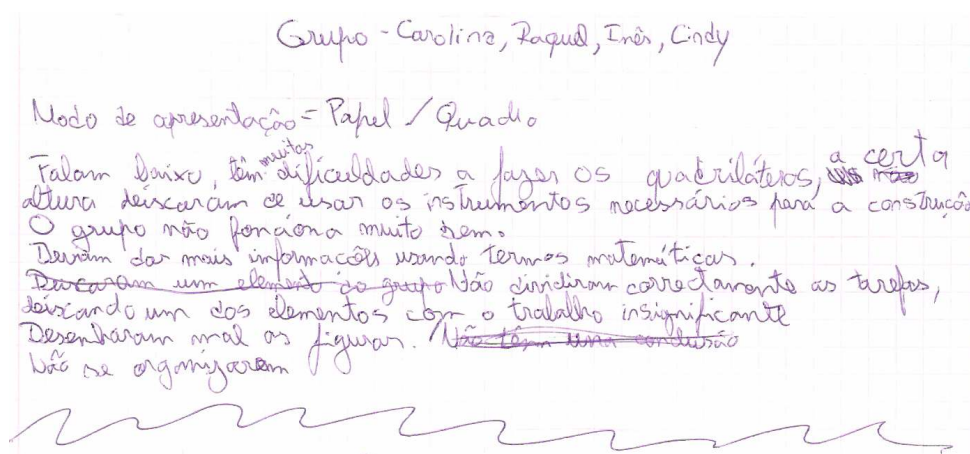 Grupo - Carolina, Raquel, Inês, Cindy
Modo de apresentação = Papel / Quadro
Falam baixo, têm muitas dificuldades a fazer os quadriláteros, a certa
altura deixaram de usar os instrumentos necessários para a construção
O grupo não fonciona muito bem.
Deviam dar mais informacões usando termos matemáticas.
Deixaram um elemento do grupo Não dividiram correctamente as tarefas,
deixando um dos elementos com o trabalho insignificante
Desenharam mal as figuras. Não têm uma conclusão
Não se organizaram